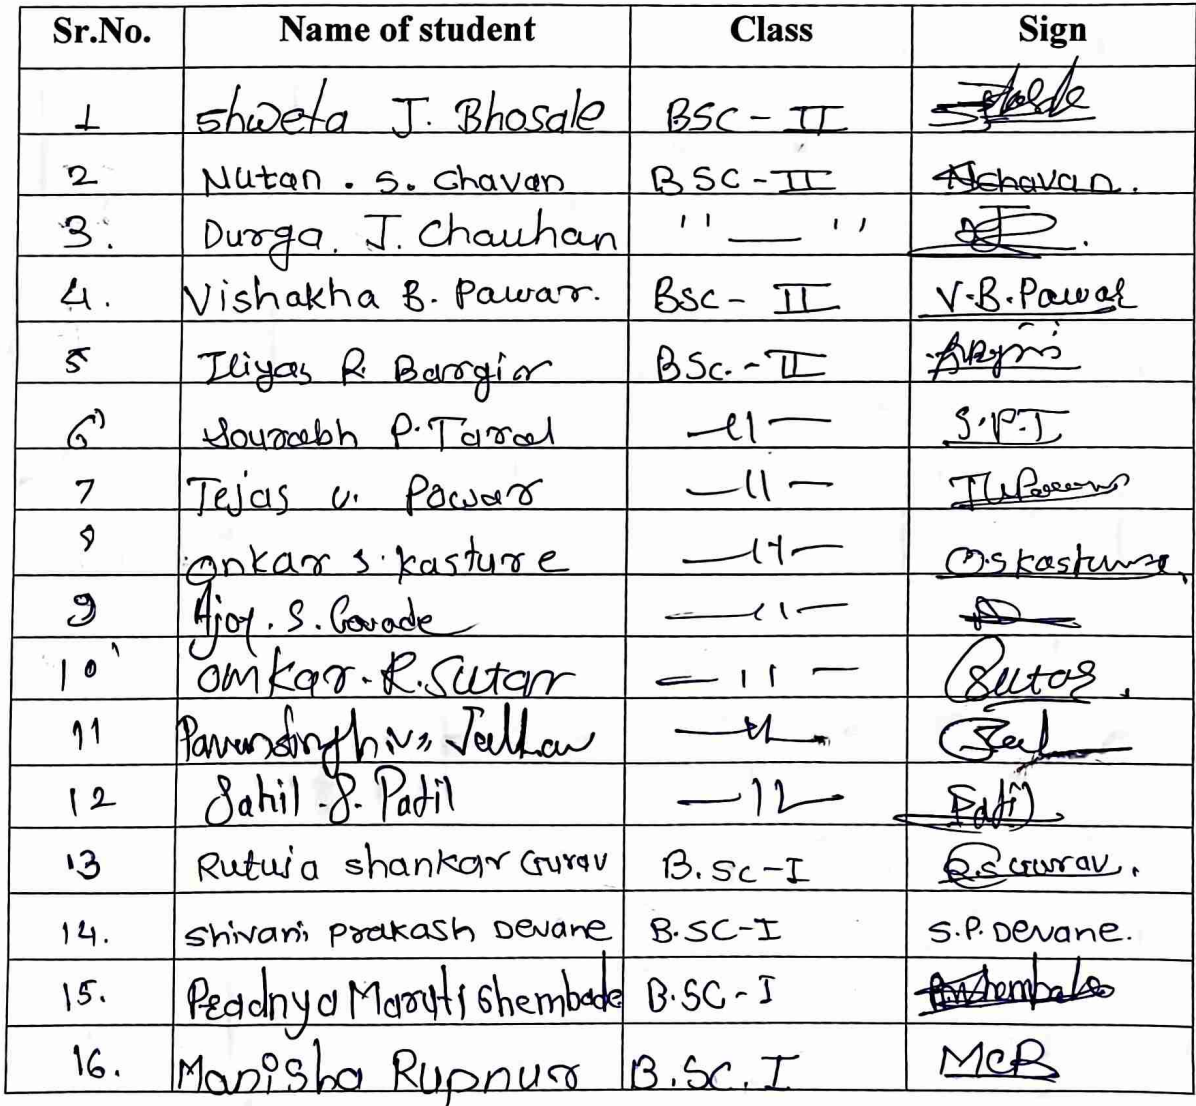 Sr.No. Name of student Class Sign
1 Shweta J. Bhosale BSC - II
2 Nutan . S. Chavan BSC - II NChavan.
3. Durga. J. Chauhan " — "
4. Vishakha B. Pawar. BSC - II V.B.Pawar
5 Iliyas R. Bargir BSc. - II
6) Sourabh P. Taral —11— S.P.T
7 Tejas U. Pawar —11—
8 Onkar S. Kasture —11— O.S Kasture.
9 Ajay. S. Gavade —11—
10 Omkar. R. Sutar —11— Sutar.
11 Pavansingh V. Jadhav —11—
12 Sahil . S. Patil —11— Patil
13 Rutuja Shankar Gurav B.Sc-I R.S Gurav.
14. Shivani Prakash Devane B.SC-I S.P. Devane.
15. Pradnya Maruti Shembade B.SC - I
16. Manisha Rupnur B.SC. I MCR